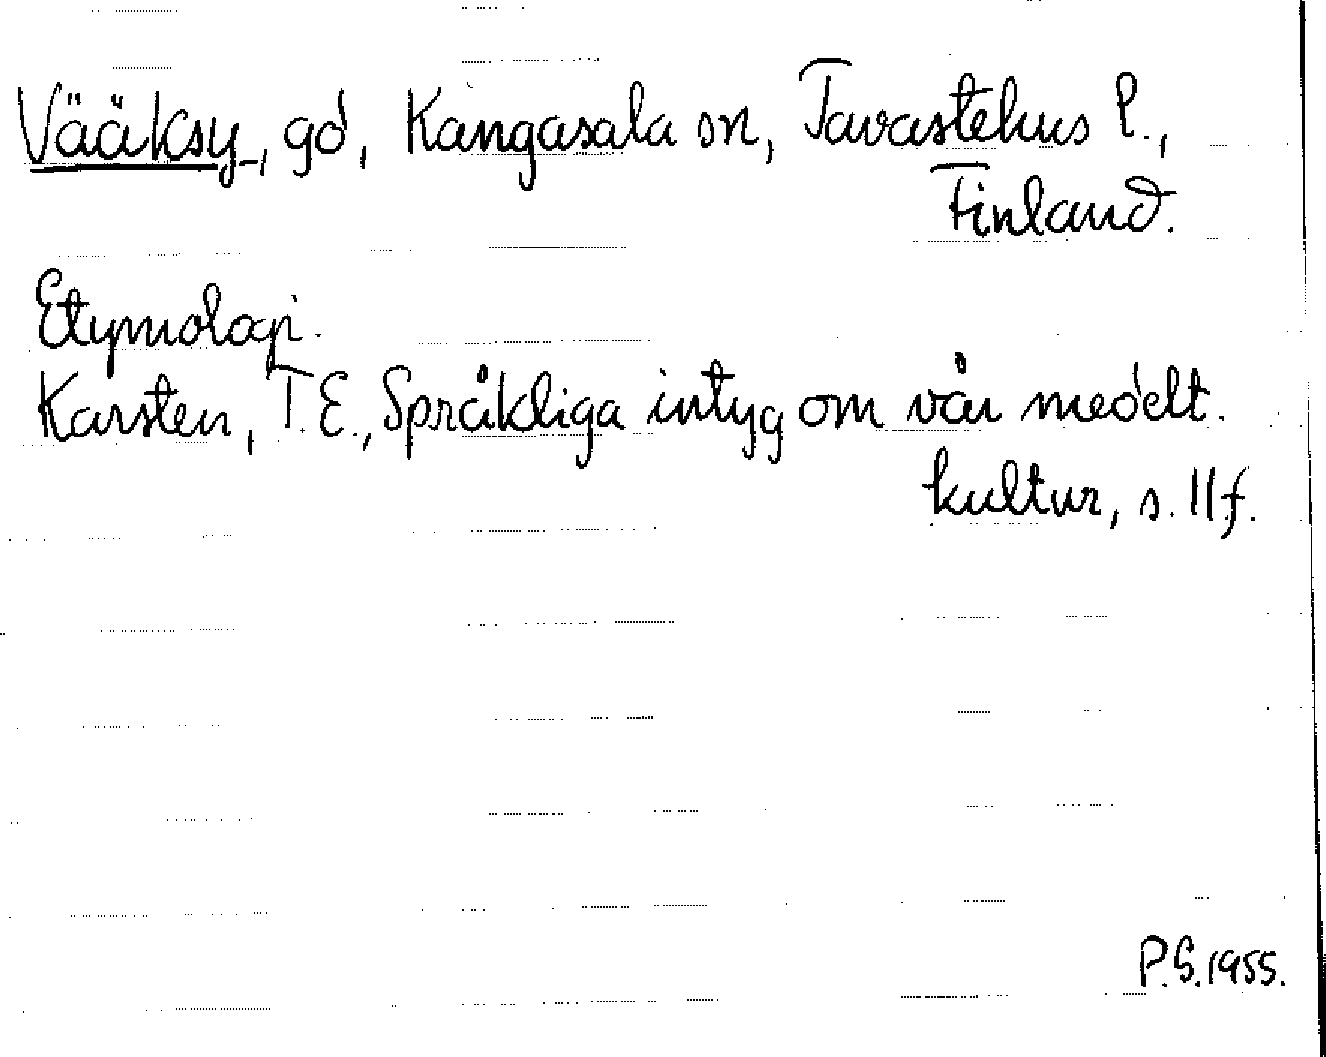 Vääksy, gd, Kangasala sn, Tavastehus l.,
Finland.
Etymologi.
Karsten, T.E., Språkliga intyg om vår medelt.
kultur, s. 11f.
P.S. 1955.